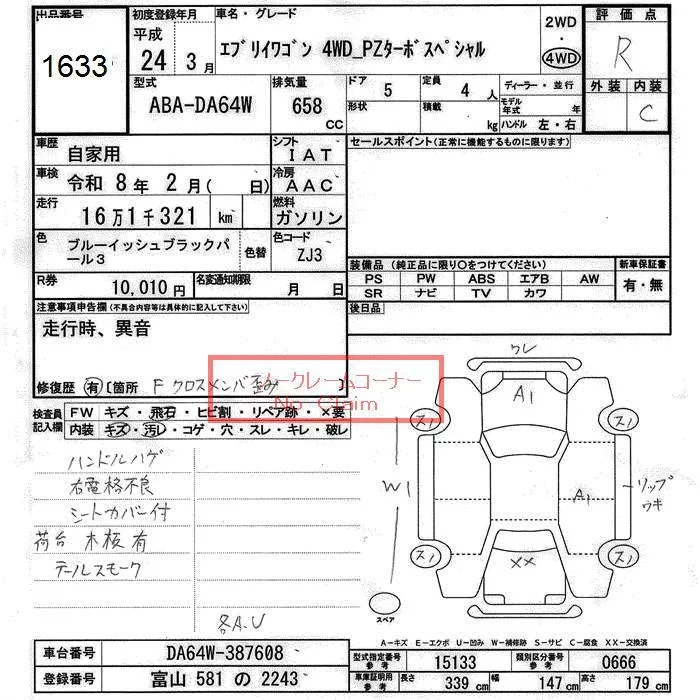 出品番号 初度登録年月 車名・グレード 評価点
1633 平成 24 3月 エブリイワゴン 4WD_PZターボスペシャル 2WD・4WD R
型式 排気量 ドア 5 定員 4 人 ディーラー・並行 外装 内装
ABA-DA64W 658 CC 形状 積載 kg モデル年式 年 C
ハンドル 左・右
車歴 自家用 シフト IAT セールスポイント(正常に機能するものに限ります)
車検 令和 8年 2月( 日) 冷房 AAC
走行 16万1千321 km 燃料 ガソリン
色 ブルーイッシュブラックパール3 色替 色コード ZJ3
装備品(純正品に限り○をつけてください) 新車保証書
R券 10,010円 名変通知期限 月 日 PS PW ABS エアB AW 有・無
SR ナビ TV カワ
注意事項申告欄(不具合内容等は具体的に記入して下さい) 後日品
走行時、異音
ノークレームコーナー
No Claim
修復歴 有 〔箇所 F クロスメンバ歪み 〕
検査員記入欄 FW キズ・飛石・ヒビ割・リペア跡・×要
内装 キズ・汚レ・コゲ・穴・スレ・キレ・破レ
ハンドルハゲ
右電格不良
シートカバー付
荷台 木板有
テールスモーク
各A.U
ワレ
A1
スノ スノ
W1 A1 リップウキ
スノ スノ
XX
スペア
A-キズ E-エクボ U-凹み W-補修跡 S-サビ C-腐食 XX-交換済
車台番号 DA64W-387608 型式指定番号 参考 15133 類別区分番号 参考 0666
登録番号 富山 581 の 2243 車庫証明用 参考 長さ 339 cm 幅 147 cm 高さ 179 cm